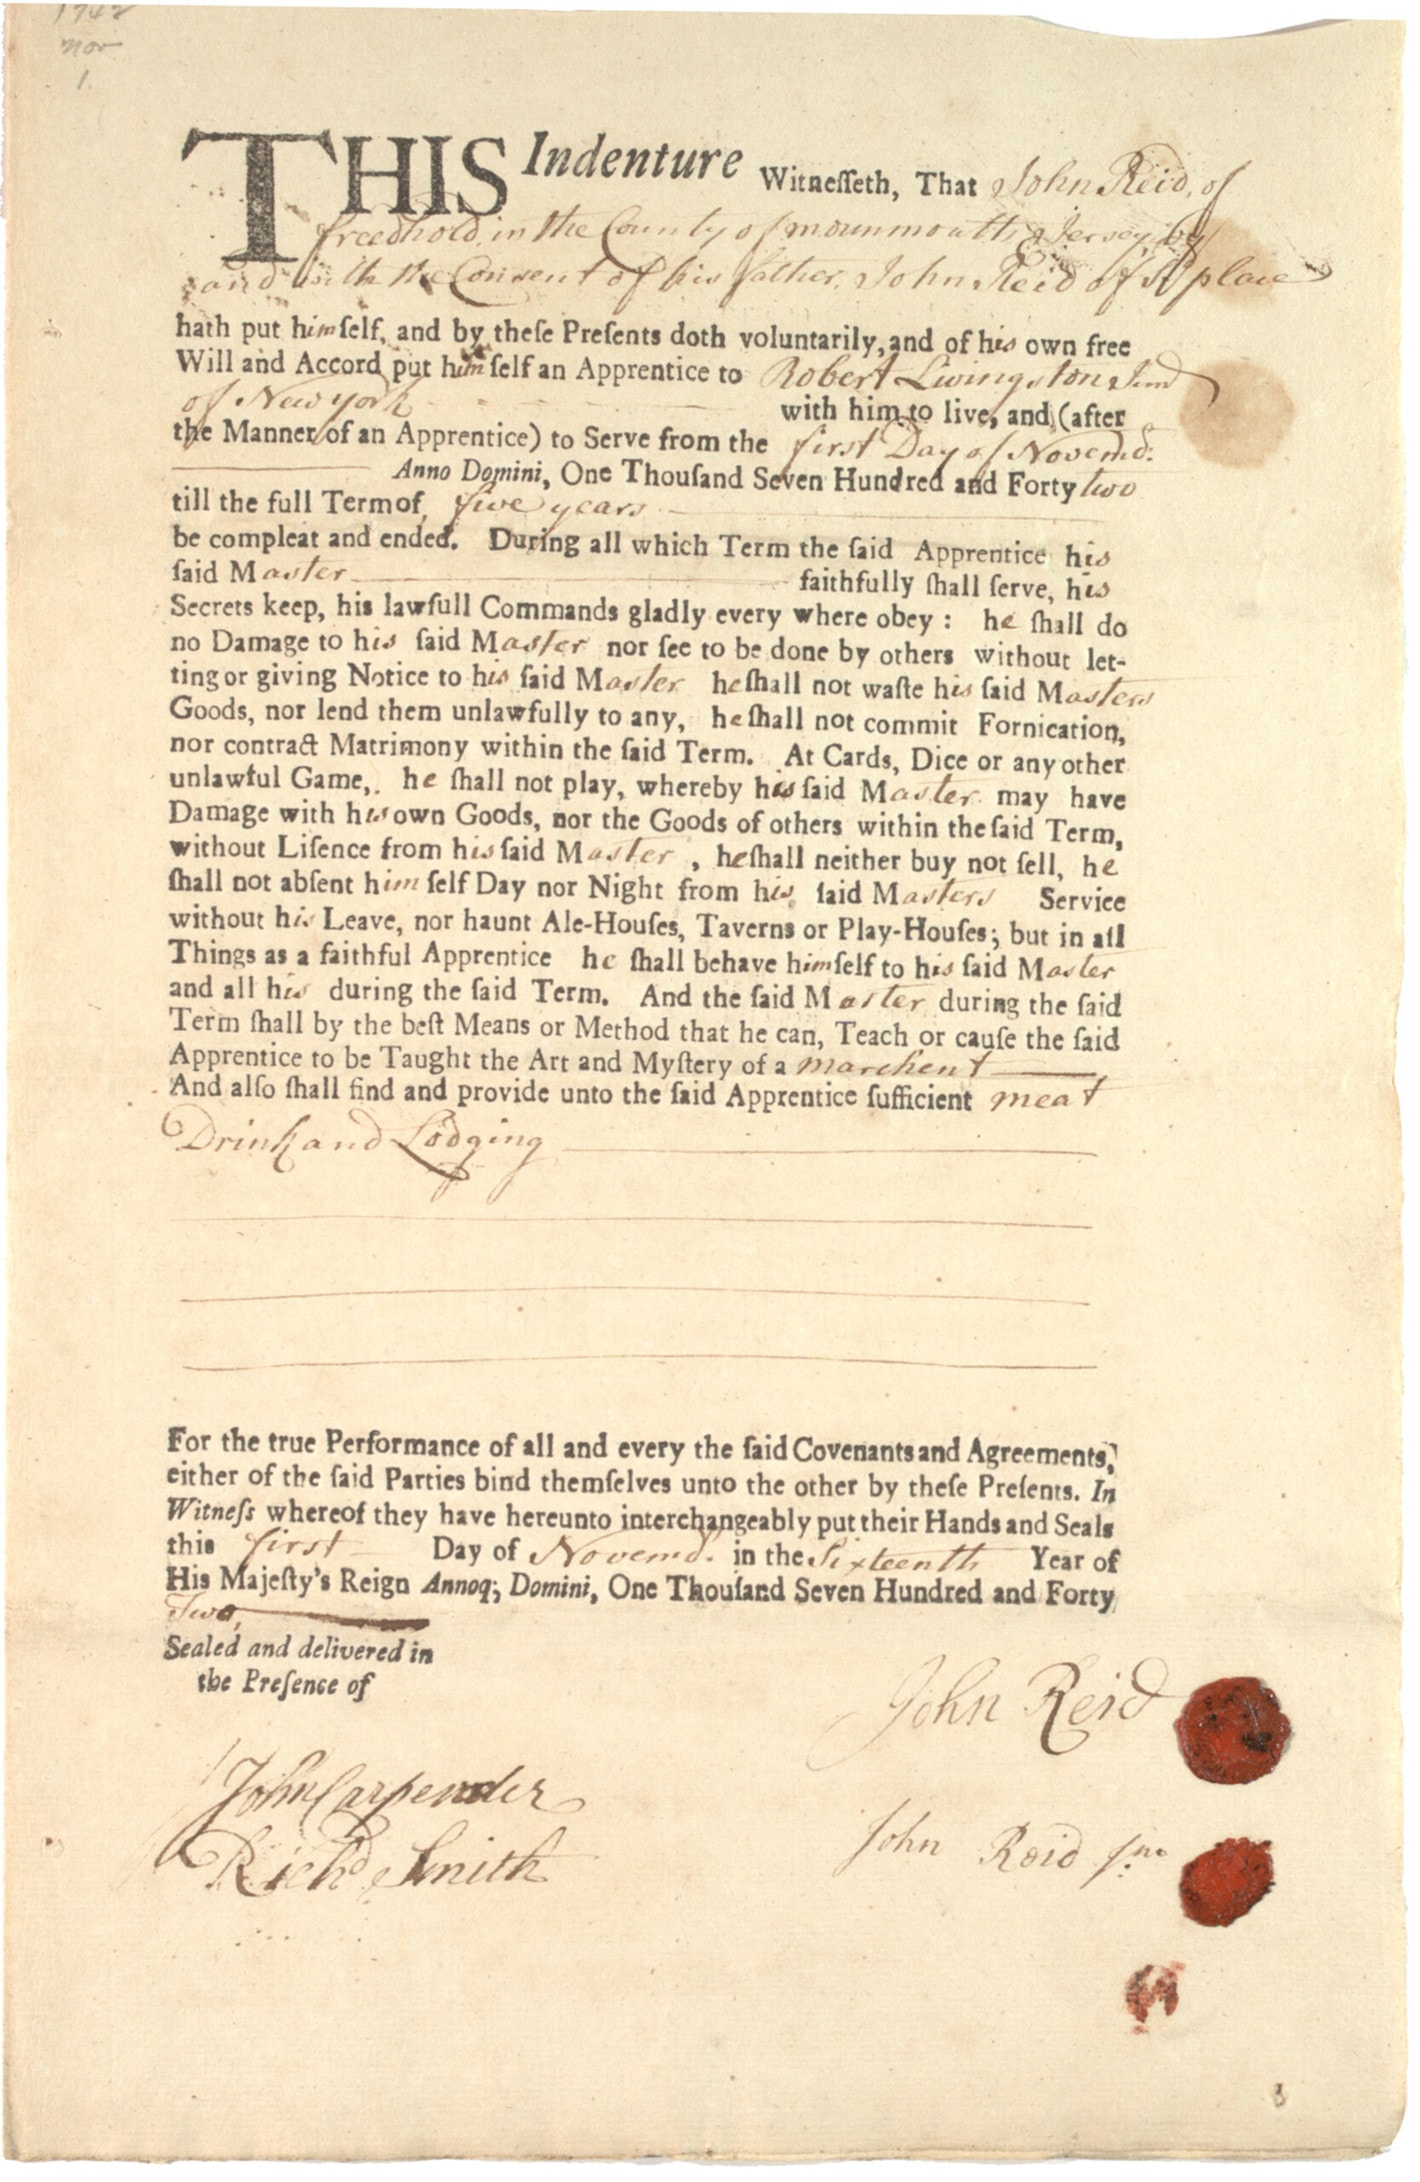 1742
Nov
1.
THIS Indenture Witnesseth, That John Reid, of
freedhold, in the County of mounmouth, Jersey, by
and with the Consent of his father, John Reid of sd place
hath put himself, and by these Presents doth voluntarily, and of his own free
Will and Accord put himself an Apprentice to Robert Livingston Junr
of New york with him to live, and (after
the Manner of an Apprentice) to Serve from the first Day of Novemd:
Anno Domini, One Thousand Seven Hundred and Forty two
till the full Term of five years
be compleat and ended. During all which Term the said Apprentice his
said Master faithfully shall serve, his
Secrets keep, his lawfull Commands gladly every where obey: he shall do
no Damage to his said Master nor see to be done by others without let-
ting or giving Notice to his said Master he shall not waste his said Masters
Goods, nor lend them unlawfully to any, he shall not commit Fornication,
nor contract Matrimony within the said Term. At Cards, Dice or any other
unlawful Game, he shall not play, whereby his said Master may have
Damage with his own Goods, nor the Goods of others within the said Term,
without Lisence from his said Master, he shall neither buy not sell, he
shall not absent himself Day nor Night from his said Masters Service
without his Leave, nor haunt Ale-Houses, Taverns or Play-Houses; but in all
Things as a faithful Apprentice he shall behave himself to his said Master
and all his during the said Term. And the said Master during the said
Term shall by the best Means or Method that he can, Teach or cause the said
Apprentice to be Taught the Art and Mystery of a marchent
And also shall find and provide unto the said Apprentice sufficient meat
Drink and Lodging
For the true Performance of all and every the said Covenants and Agreements,
either of the said Parties bind themselves unto the other by these Presents. In
Witness whereof they have hereunto interchangeably put their Hands and Seals
this first Day of Novemd. in the Sixteenth Year of
His Majesty's Reign Annoq; Domini, One Thousand Seven Hundred and Forty
Two,
Sealed and delivered in
the Presence of
John Reid
John Carpender
John Reid Jnr
Richd Smith